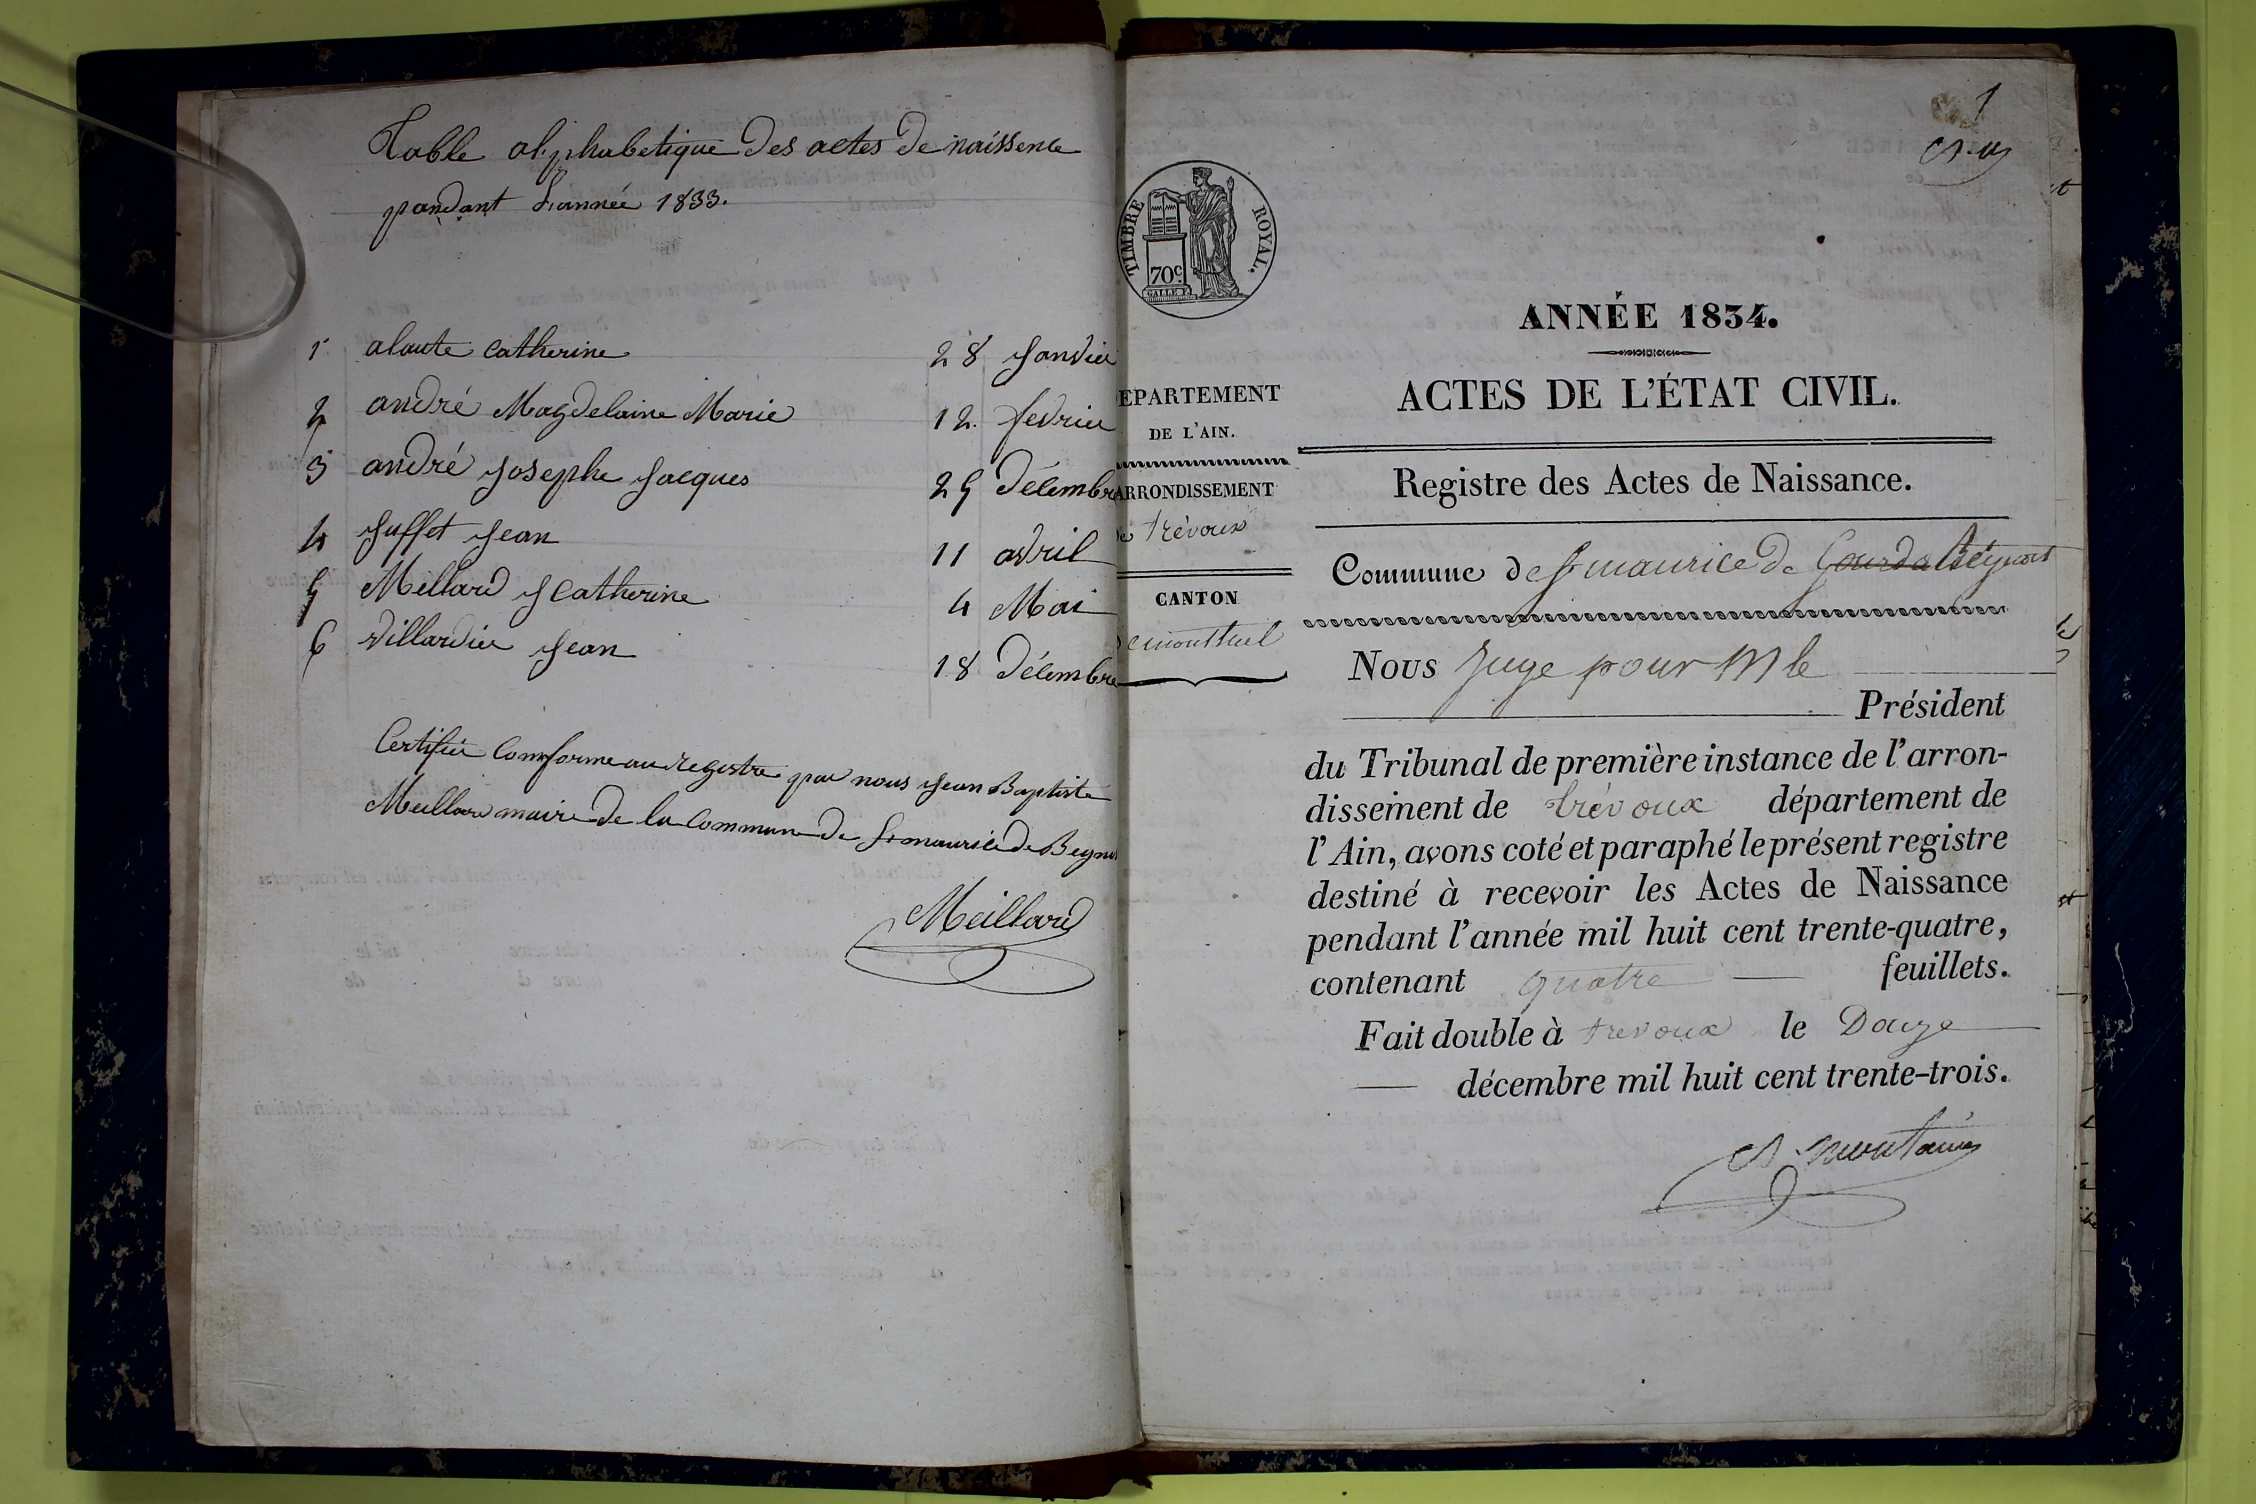 Table alphabetique des actes de naissence
pandant L'année 1833.
1 alaute Catherine 28 Janvier
2 andré Magdelaine Marie 12 fevrier
3 andré Josephe Jacques 25 Décembre
4 Juffet Jean 11 avril
5 Meillard Catherine 4 Mai
6 Villardier Jean 18 Décembre
Certifier Comforme au registre par nous Jean Baptiste
Meillard maire de la Commune de St maurice de Beyno
Meillard
1
TIMBRE ROYAL.
70c.
EPARTEMENT
DE L'AIN.
ARRONDISSEMENT
de trévoux
CANTON
de montluel
ANNÉE 1834.
ACTES DE L'ÉTAT CIVIL.
Registre des Actes de Naissance.
Commune de St maurice de Gourda Béynost
Nous Juge pour M le
Président
du Tribunal de première instance de l'arron-
dissement de trévoux département de
l'Ain, avons coté et paraphé le présent registre
destiné à recevoir les Actes de Naissance
pendant l'année mil huit cent trente-quatre,
contenant quatre feuillets.
Fait double à trevoux le Douze
décembre mil huit cent trente-trois.